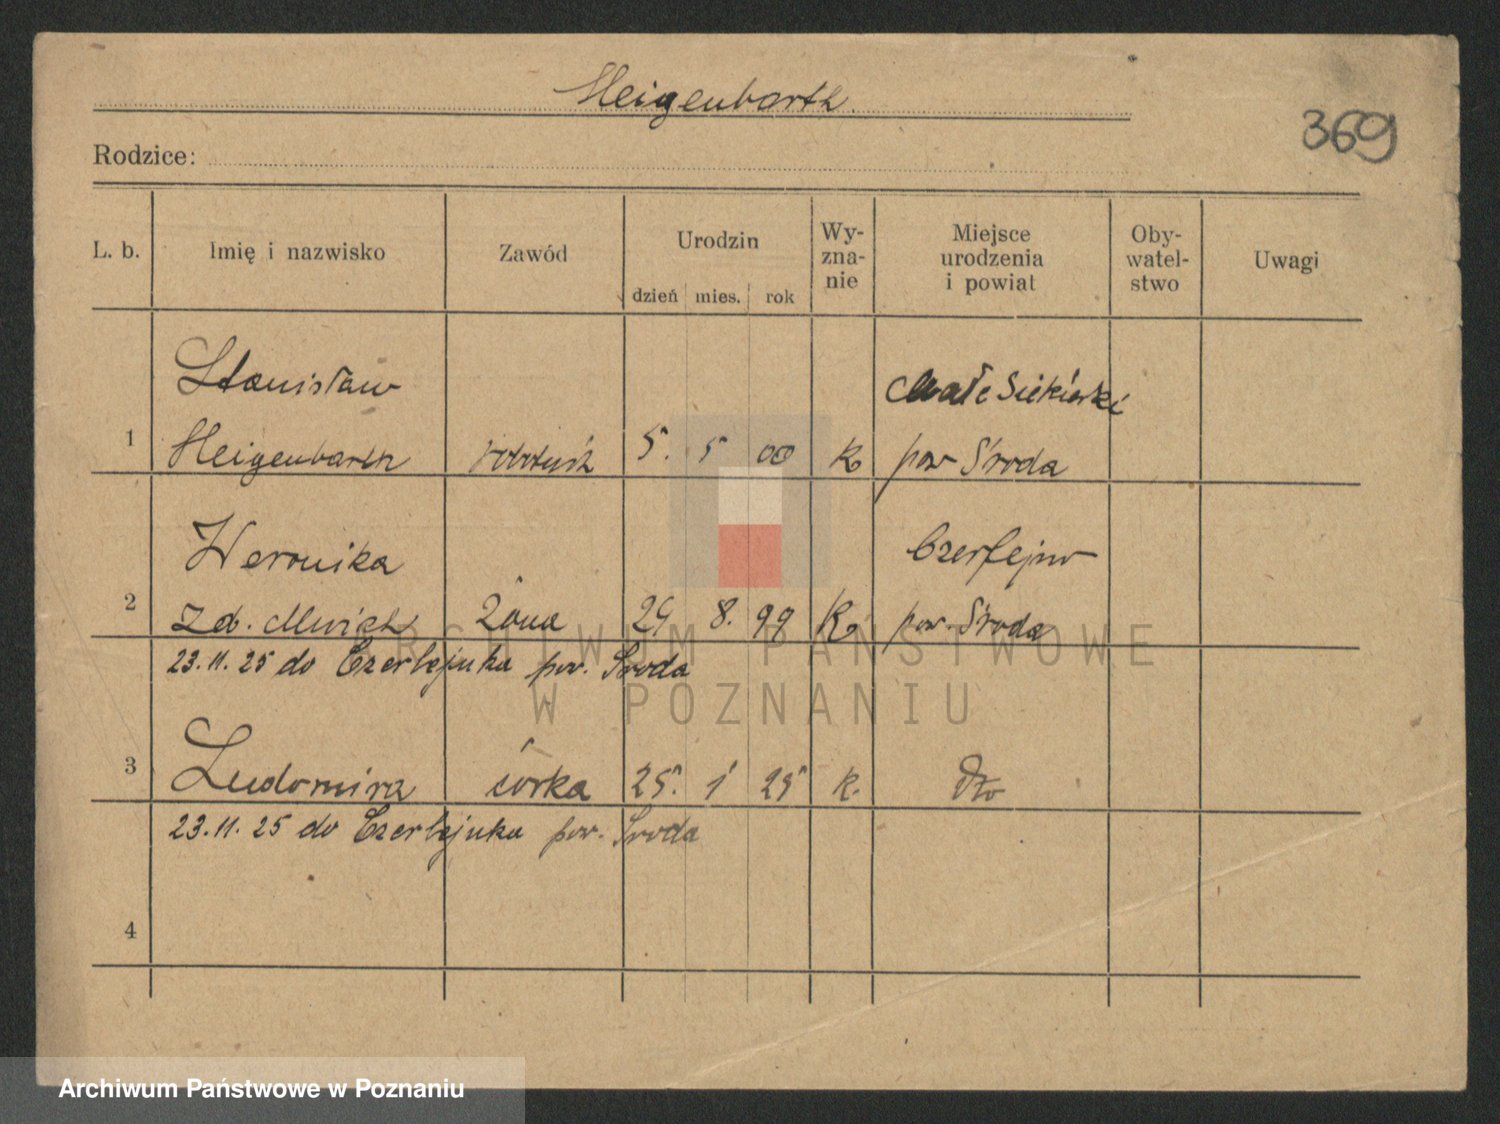 Heigenbarth.
369
Rodzice:
L. b. Imię i nazwisko Zawód Urodzin dzień mies. rok Wy-zna-nie Miejsce urodzenia i powiat Oby-watel-stwo Uwagi
Stanisław Małe Siekierki
1 Heigenbarth 5. 5 00 k pow Środa
Weronika Czerlejno
2 zd. żona 29 8. 99 k. pow. Środa
23.11.25 do Czerlejnka pow. Środa
3 Ludomira córka 25. 1 25 k. dto
23.11.25 do Czerlejnka pow. Środa
4
ARCHIWUM PAŃSTWOWE
W POZNANIU
Archiwum Państwowe w Poznaniu